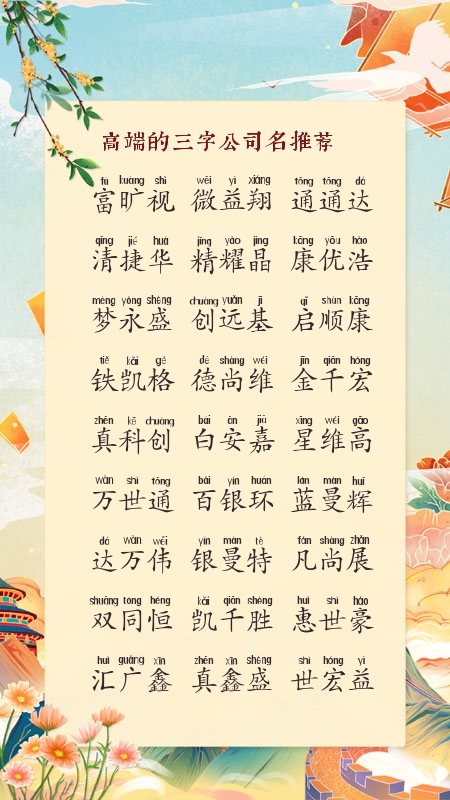 高端的三字公司名推荐
fù kuàng shì wēi yì xiáng tōng tōng dá
富旷视 微益翔 通通达
qīng jié huá jīng yào jīng kāng yōu hào
清捷华 精耀晶 康优浩
mèng yǒng shèng chuàng yuǎn jī qǐ shùn kāng
梦永盛 创远基 启顺康
tiě kǎi gé dé shàng wéi jīn qiān hóng
铁凯格 德尚维 金千宏
zhēn kē chuàng bái ān jiā xīng wéi gāo
真科创 白安嘉 星维高
wàn shì tōng bǎi yín huán lán màn huī
万世通 百银环 蓝曼辉
dá wàn wěi yín màn tè fán shàng zhǎn
达万伟 银曼特 凡尚展
shuāng tóng héng kǎi qiān shèng huì shì háo
双同恒 凯千胜 惠世豪
huì guǎng xīn zhēn xīn shèng shì hóng yì
汇广鑫 真鑫盛 世宏益